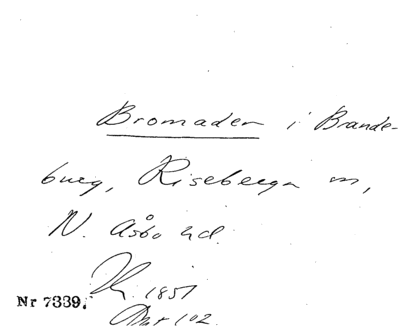 Bromaden i Brande-
burg, Riseberga sn,
N. Åsbo hd.
1851
Nr 7339.
Akt 102